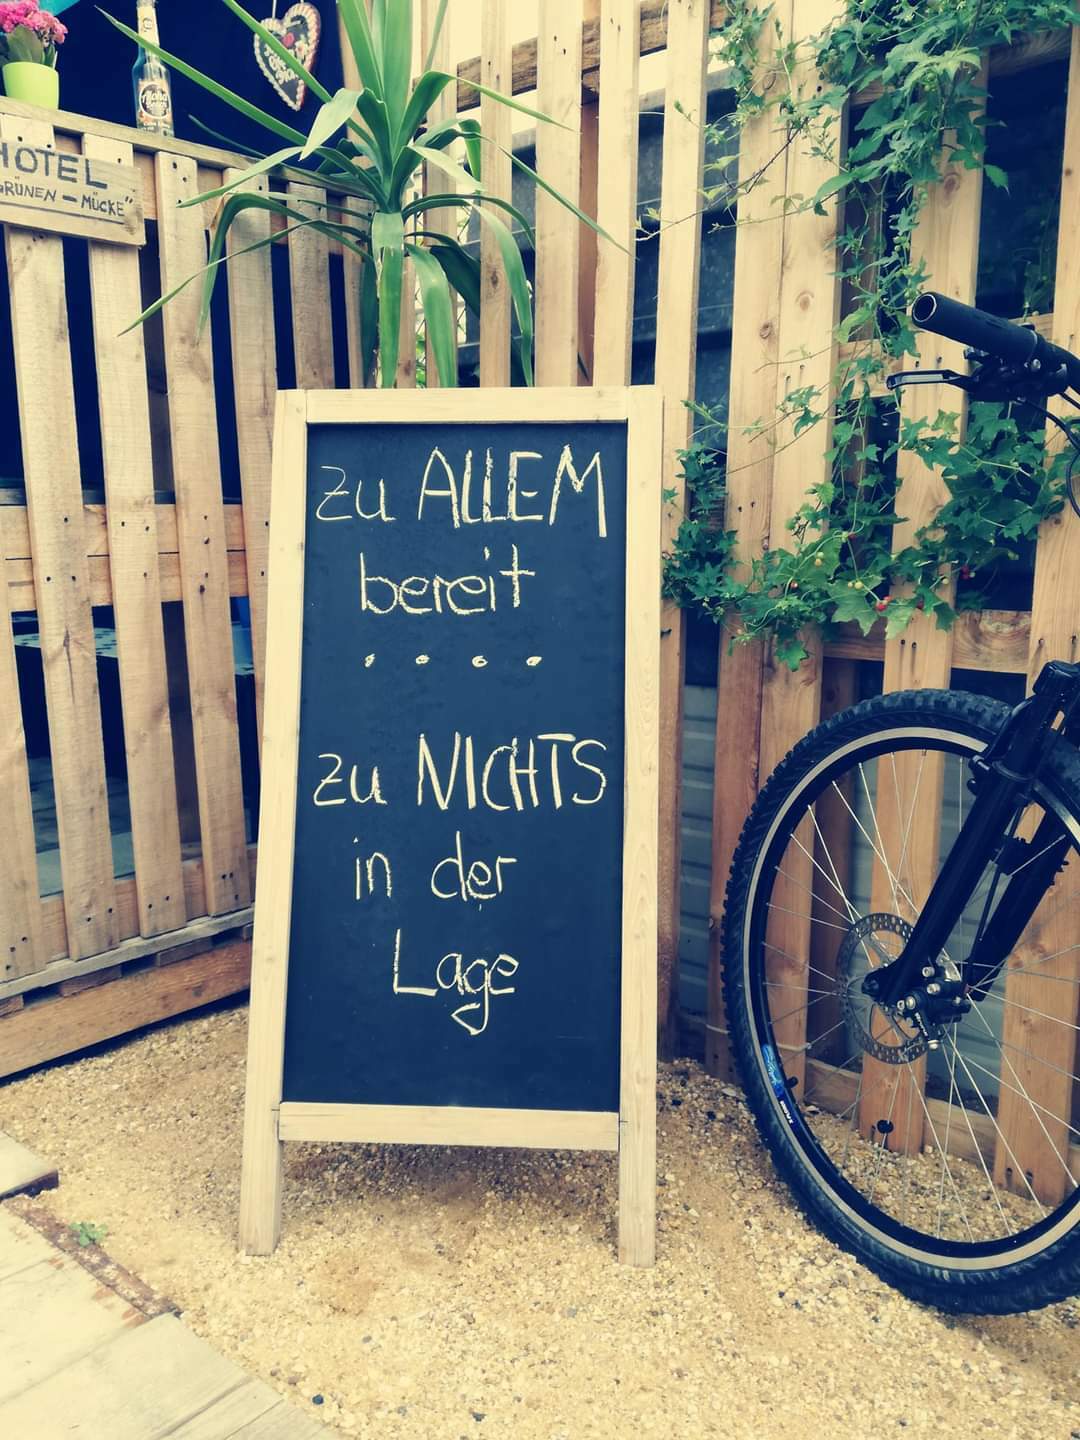 HOTEL
GRÜNEN – MÜCKE"
zu ALLEM
bereit
. . . .
zu NICHTS
in der
Lage